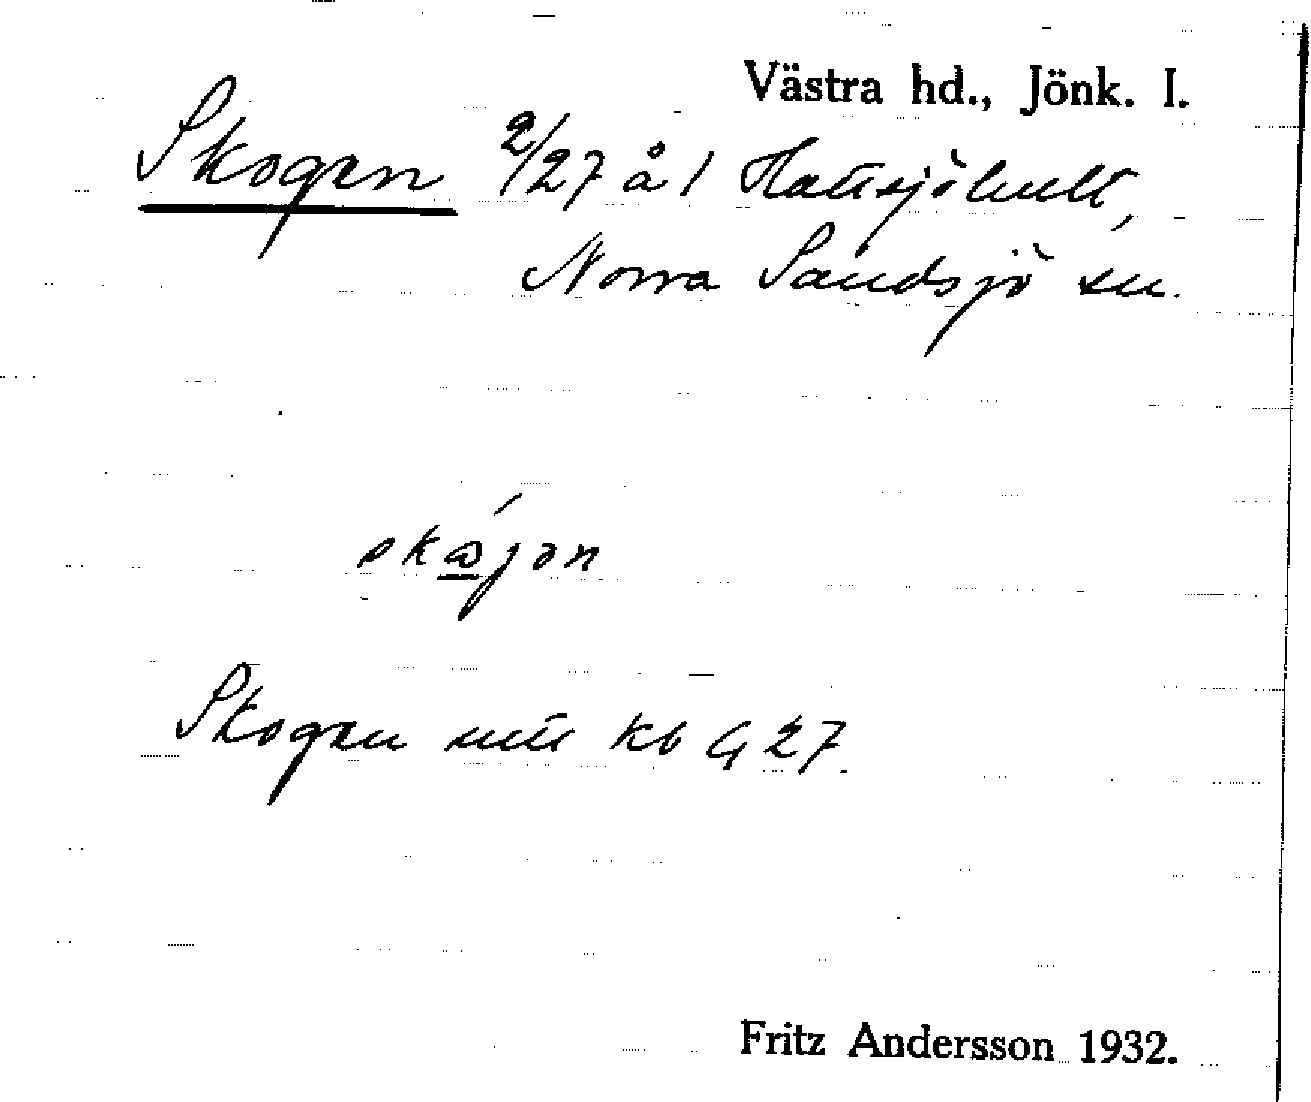 Västra hd., Jönk. l.
Skogen 2/27 å 1 Hattsjöhult,
Norra Sandsjö sn.
Skogen mtl Kb G 27.
Fritz Andersson 1932.